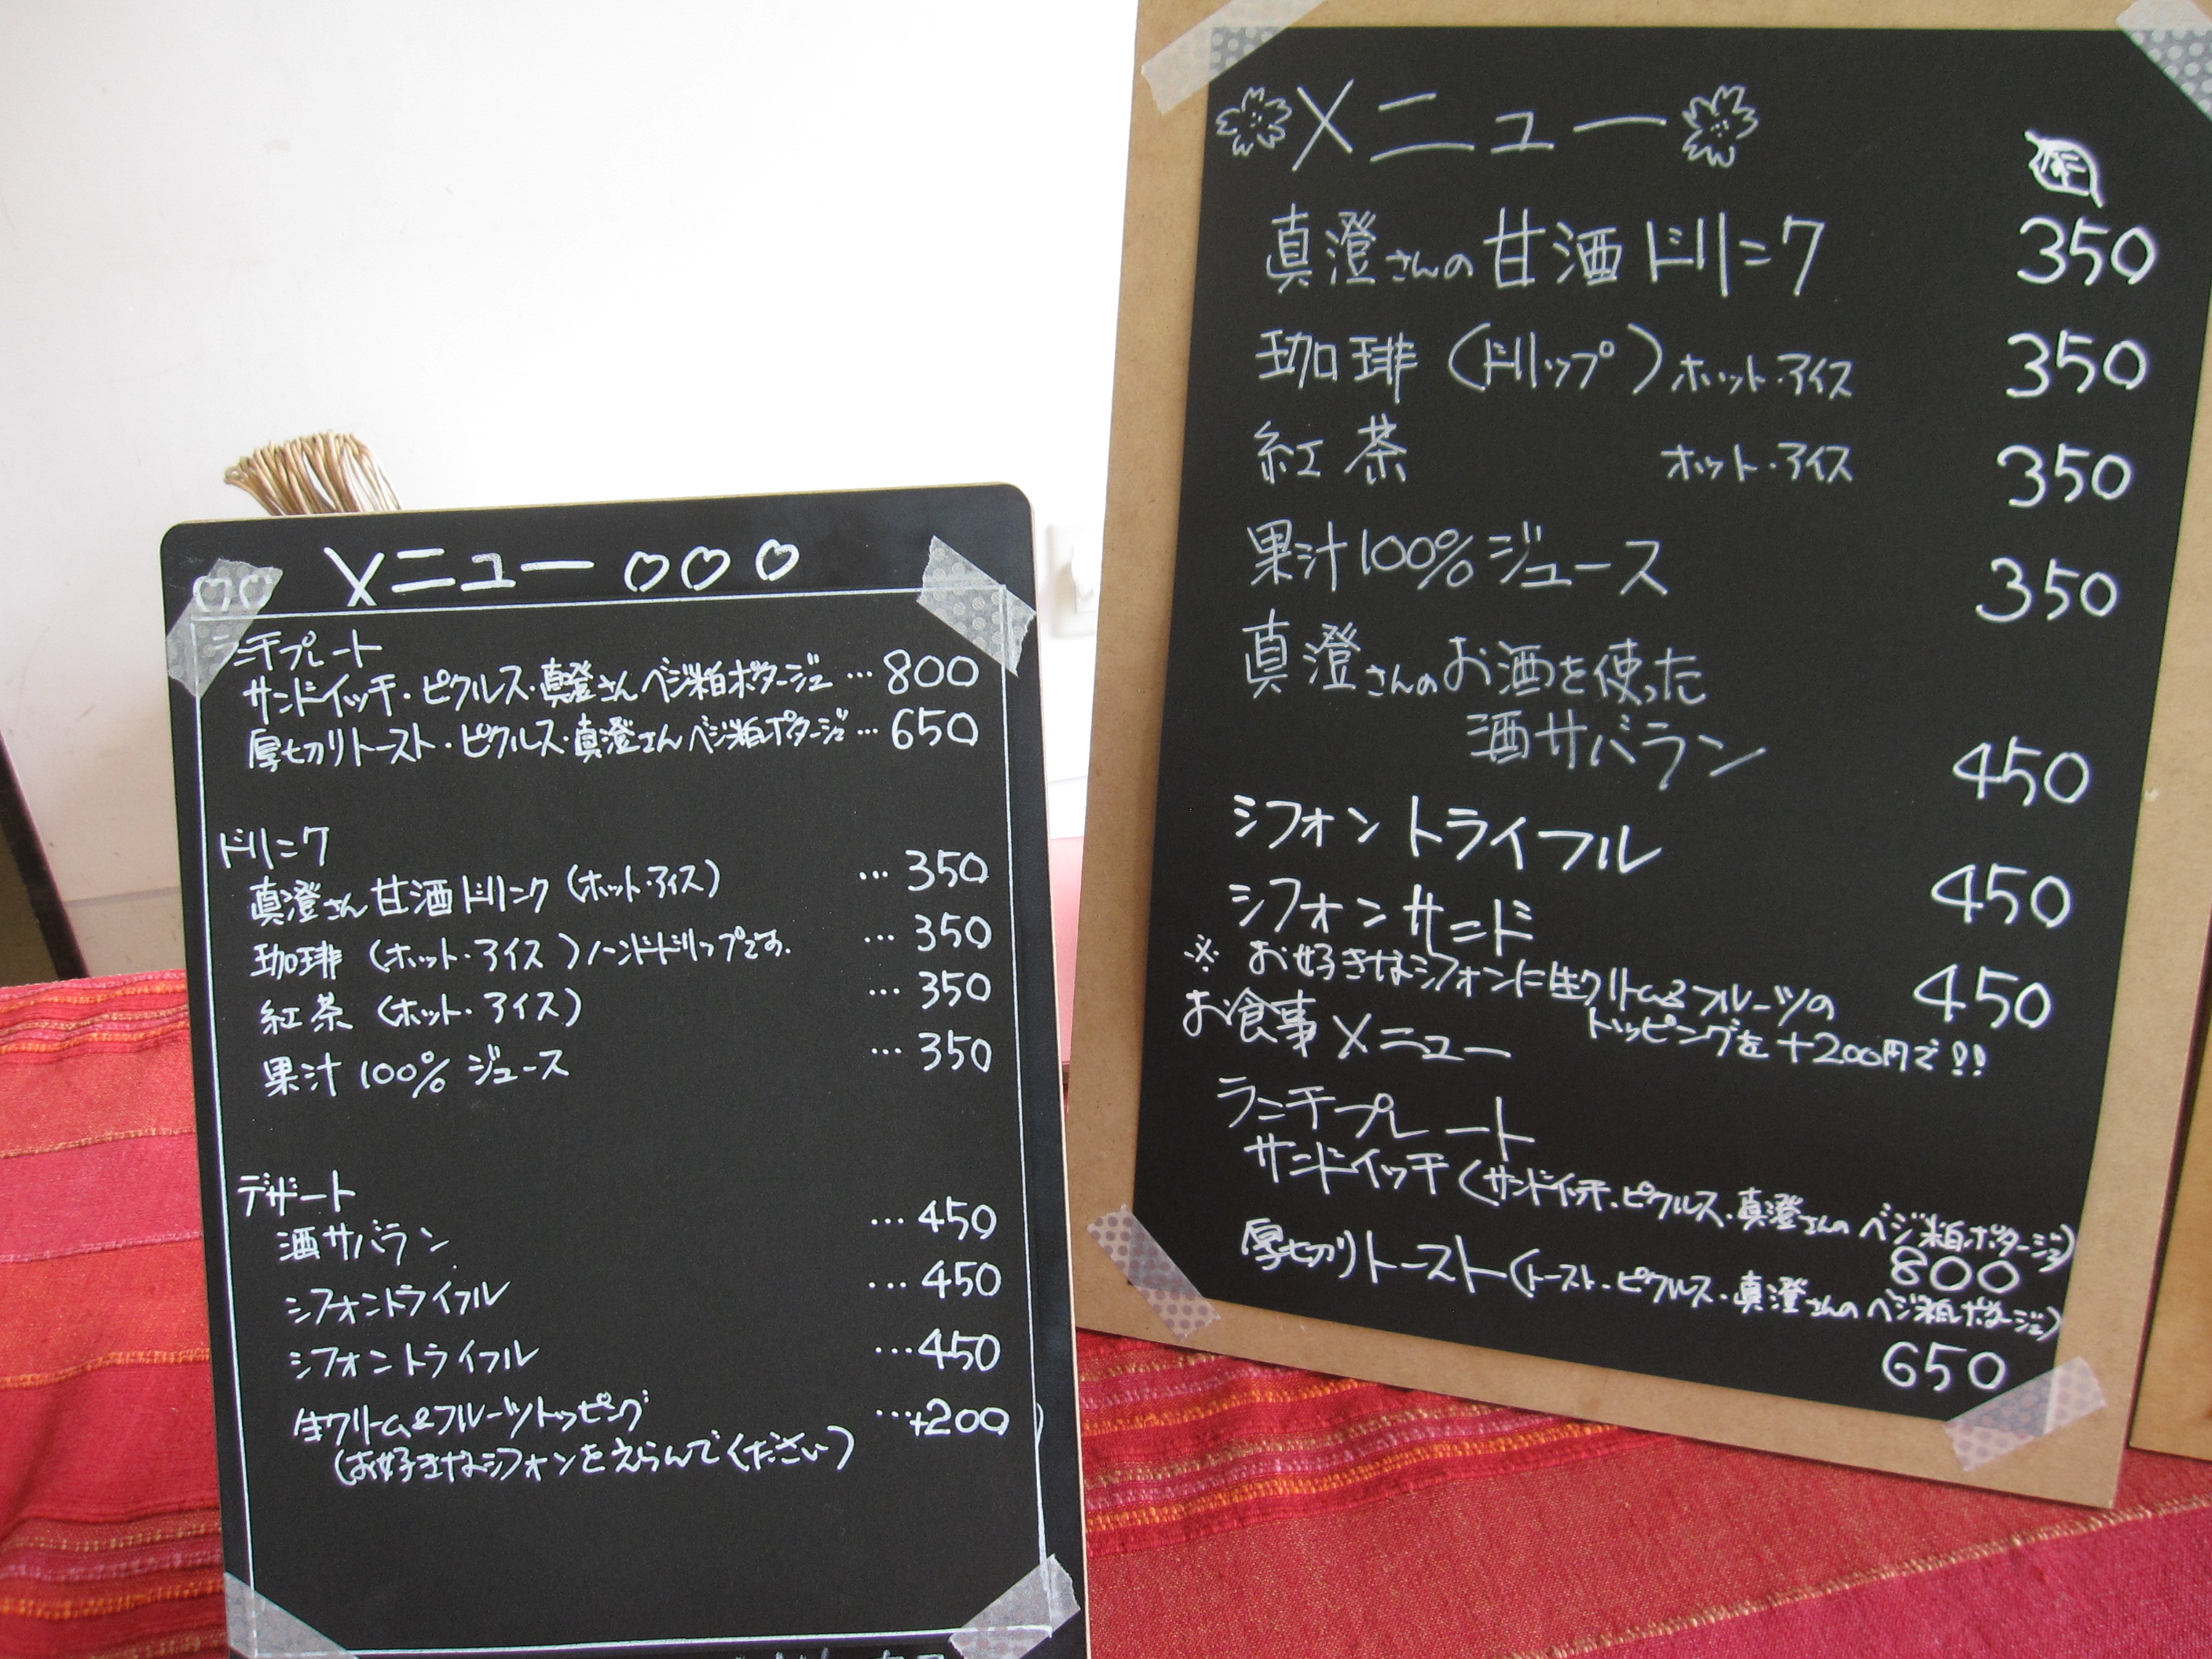 メニュー
ランチプレート
サンドイッチ・ピクルス・真澄さんベジ粕ポタージュ … 800
厚切りトースト・ピクルス・真澄さんベジ粕ポタージュ … 650
ドリンク
真澄さん甘酒ドリンク（ホット・アイス） … 350
珈琲（ホット・アイス）ハンドドリップです。 … 350
紅茶（ホット・アイス） … 350
果汁100%ジュース … 350
デザート
酒サバラン … 450
シフォントライフル … 450
シフォントライフル … 450
生クリーム&フルーツトッピング … +200
（お好きなシフォンをえらんでください）
メニュー
真澄さんの甘酒ドリンク 350
珈琲（ドリップ）ホット・アイス 350
紅茶 ホット・アイス 350
果汁100%ジュース 350
真澄さんのお酒を使った
酒サバラン 450
シフォントライフル 450
シフォンサンド 450
※お好きなシフォンに生クリーム&フルーツの
トッピングを+200円で!!
お食事メニュー
ランチプレート
サンドイッチ（サンドイッチ・ピクルス・真澄さんのベジ粕ポタージュ）
800
厚切りトースト（トースト・ピクルス・真澄さんのベジ粕ポタージュ）
650